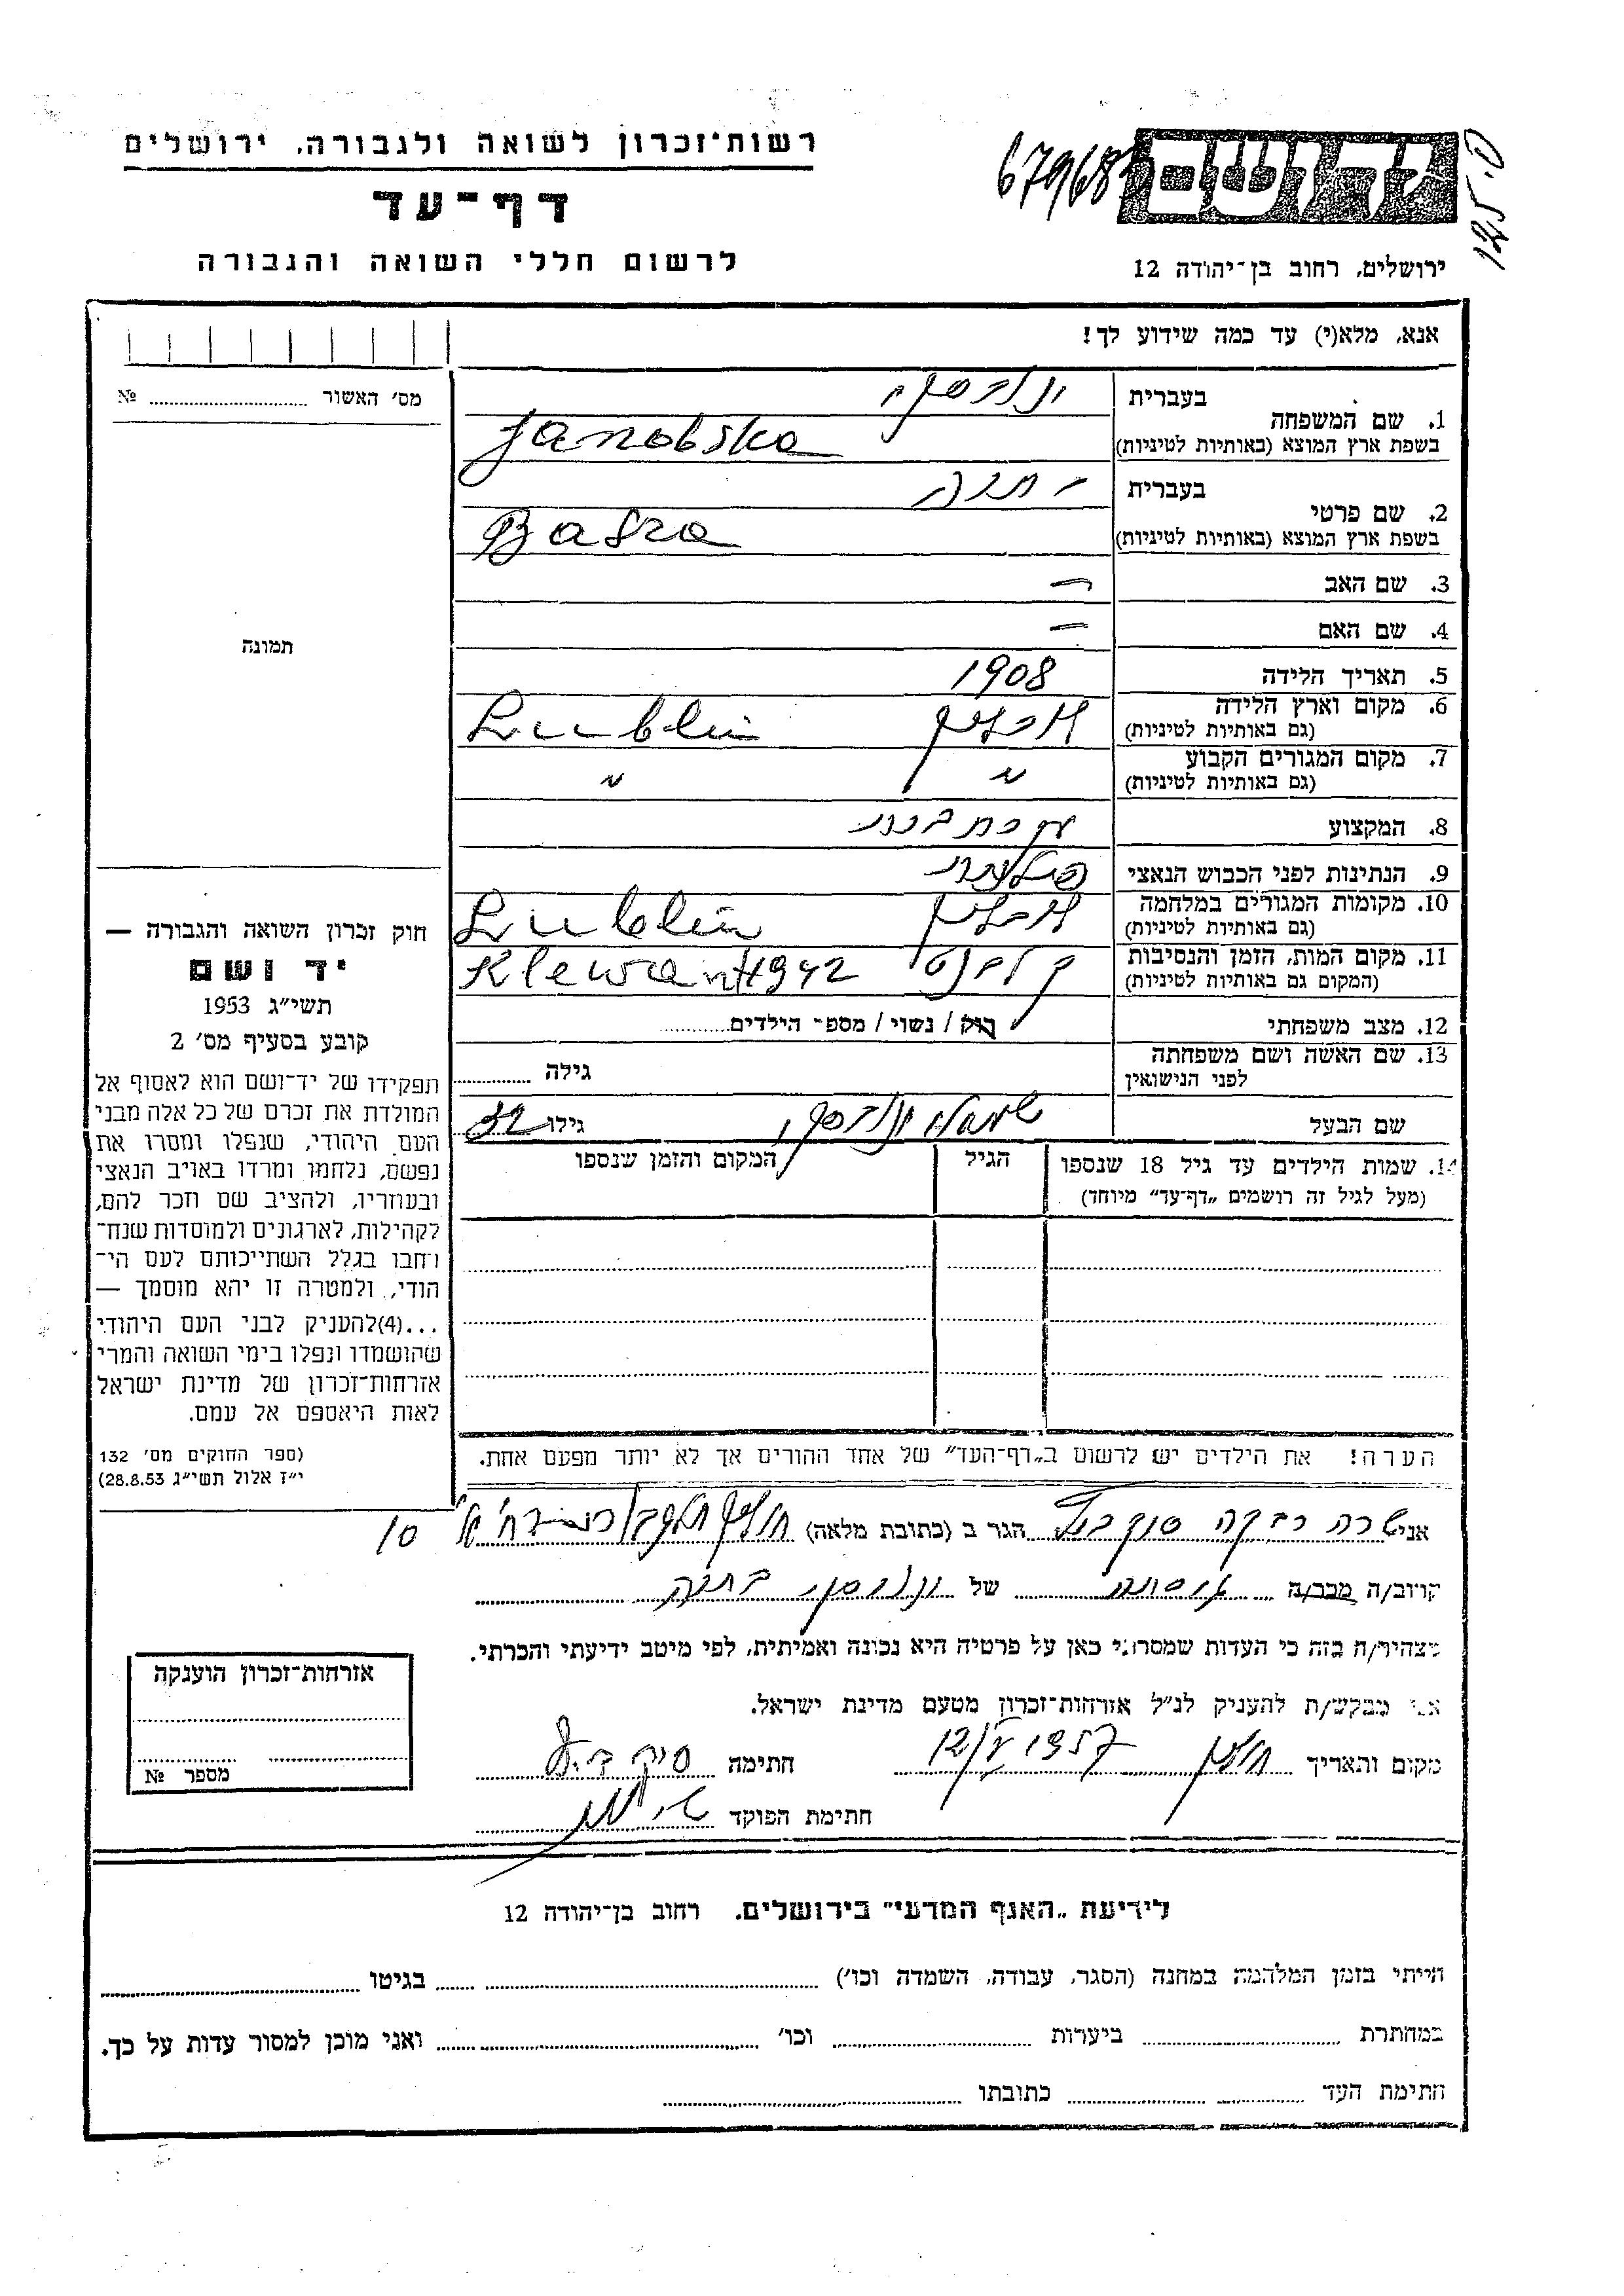 רשות־זכרון לשואה ולגבורה, ירושלים
דף־עד
לרשום חללי השואה והגבורה
יד ושם
ירושלים, רחוב בן־יהודה 12
אנא, מלא(י) עד כמה שידוע לך!
מס׳ האשור № 
1. שם המשפחה
בעברית
בשפת ארץ המוצא (באותיות לטיניות) Janobska
2. שם פרטי
בעברית
בשפת ארץ המוצא (באותיות לטיניות) Basza
3. שם האב —
4. שם האם —
5. תאריך הלידה 1908
6. מקום וארץ הלידה לובלין Lublin
(גם באותיות לטיניות)
7. מקום המגורים הקבוע " "
(גם באותיות לטיניות)
8. המקצוע עקרת בית
9. הנתינות לפני הכבוש הנאצי פולנית
10. מקומות המגורים במלחמה לובלין Lublin
(גם באותיות לטיניות)
11. מקום המות, הזמן והנסיבות 1942
(המקום גם באותיות לטיניות)
12. מצב משפחתי רוק / נשוי / מספר הילדים
13. שם האשה ושם משפחתה גילה
לפני הנישואין
שם הבעל שמואל גילו
14. שמות הילדים עד גיל 18 שנספו הגיל המקום והזמן שנספו
(מעל לגיל זה רושמים „דף־עד״ מיוחד)
הערה! את הילדים יש לרשום ב„דף־העד״ של אחד ההורים אך לא יותר מפעם אחת.
תמונה
חוק זכרון השואה והגבורה —
יד ושם
תשי״ג 1953
קובע בסעיף מס׳ 2
תפקידו של יד־ושם הוא לאסוף אל
המולדת את זכרם של כל אלה מבני
העם היהודי, שנפלו ומסרו את
נפשם, נלחמו ומרדו באויב הנאצי
ובעוזריו, ולהציב שם וזכר להם,
לקהילות, לארגונים ולמוסדות שנח־
רחבו בגלל השתייכותם לעם הי־
הודי, ולמטרה זו יהא מוסמך —
...(4)להעניק לבני העם היהודי
שהושמדו ונפלו בימי השואה והמרי
אזרחות־זכרון של מדינת ישראל
לאות היאספם אל עמם.
(ספר החוקים מס׳ 132
י״ז אלול תשי״ג 28.8.53)
אני שרה רבקה הגר ב (כתובת מלאה) 10
קרוב/ה מכר/ה של
מצהיר/ה בזה כי העדות שמסרתי כאן על פרטיה היא נכונה ואמיתית, לפי מיטב ידיעתי והכרתי.
אני מבקש/ת להעניק לנ״ל אזרחות־זכרון מטעם מדינת ישראל.
מקום ותאריך חולון 1957 חתימה
חתימת הפוקד
אזרחות־זכרון הוענקה
מספר №
לידיעת „האגף המדעי״ בירושלים. רחוב בן־יהודה 12
הייתי בזמן המלחמה במחנה (הסגר, עבודה, השמדה וכו׳) בגיטו
במחתרת ביערות וכו׳ ואני מוכן למסור עדות על כך.
חתימת העד כתובתו